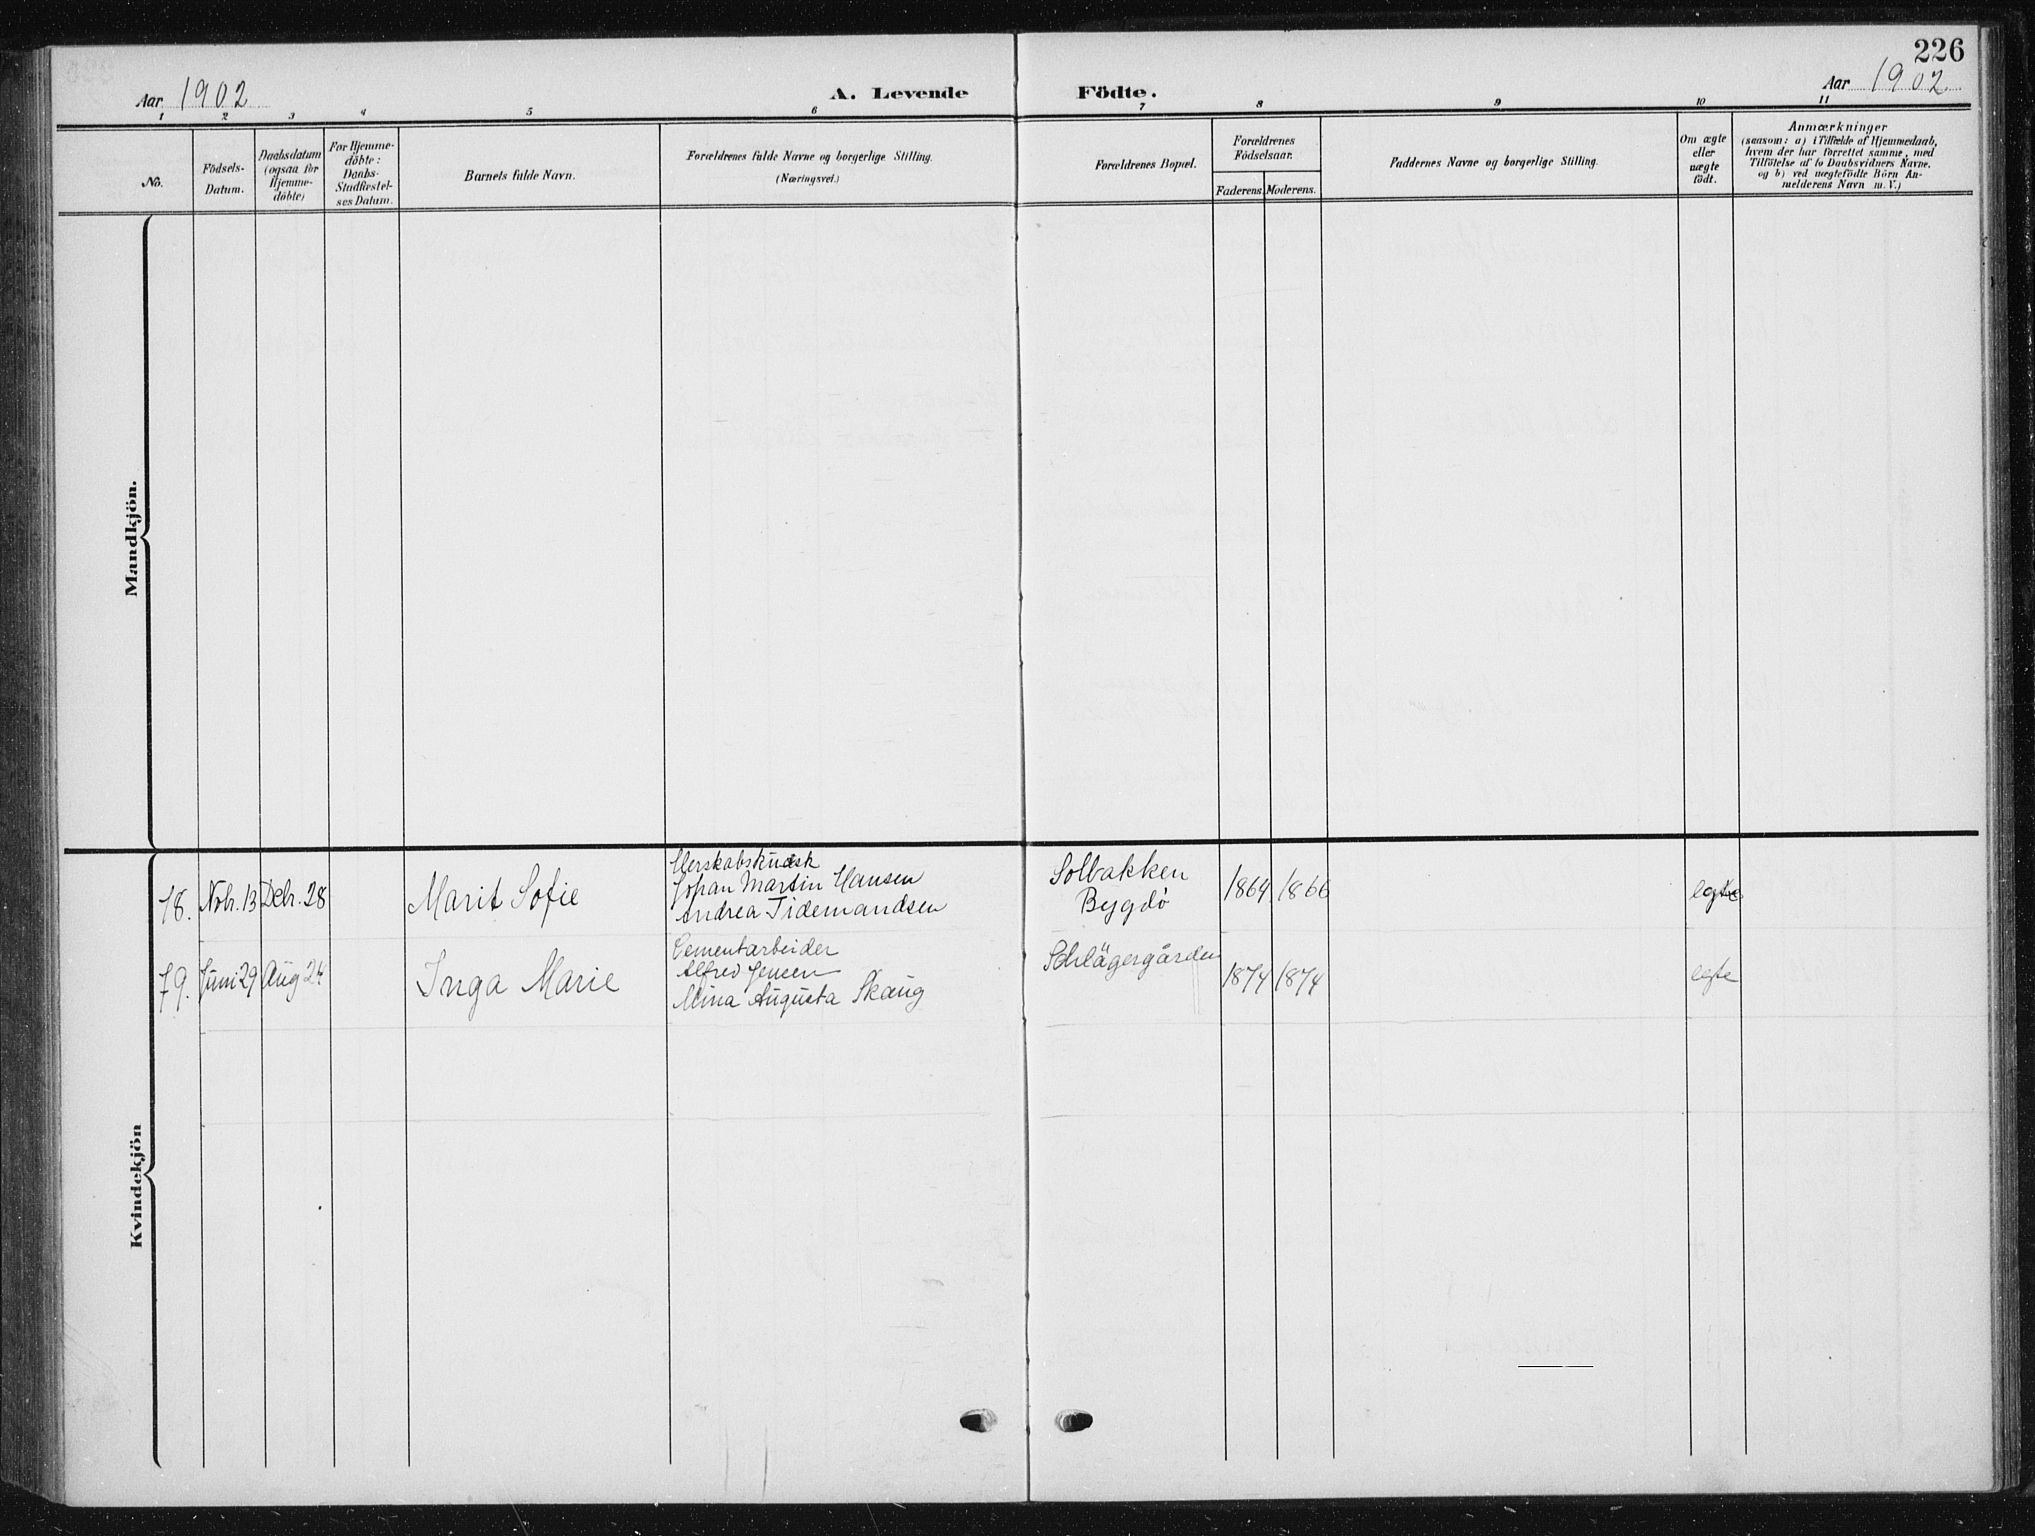 226
Aar 1902
A. Levende Födte.
Aar 1902.
1 2 3 4 5 6 7 8 9 10 11
No.
Födsels-
Datum.
Daabsdatum
(ogsaa for
Hjemme-
döbte)
For Hjemme-
döbte:
Daabs-
Stadfæstel-
ses Datum.
Barnets fulde Navn.
Forældrenes fulde Navne og borgerlige Stilling.
(Næringsvei.)
Forældrenes Bopæl.
Forældrenes
Födselsaar.
Faderens. Moderens.
Faddernes Navne og borgerlige Stilling.
Om ægte
eller
uægte
födt.
Anmærkninger
(saasom: a) i Tilfælde af Hjemmedaab,
hvem der har forrettet samme, med
Tilföielse af to Daabsvidners Navne.
og b) ved uægtefödte Börn An-
melderens Navn m. V.)
Mandkjön.
Kvindekjön
Johan Martin Hansen
Andrea Tidemandsen
78. Novr. 13 Debr. 28 Marit Sofie
Solbakken
Bygdö
1864 1866 egte
Cementarbeider
Alfred Jensen
Mina Augusta Skaug
79. Juni 29 Aug 24 Inga Marie
Schlägergården
1874 1874 egte